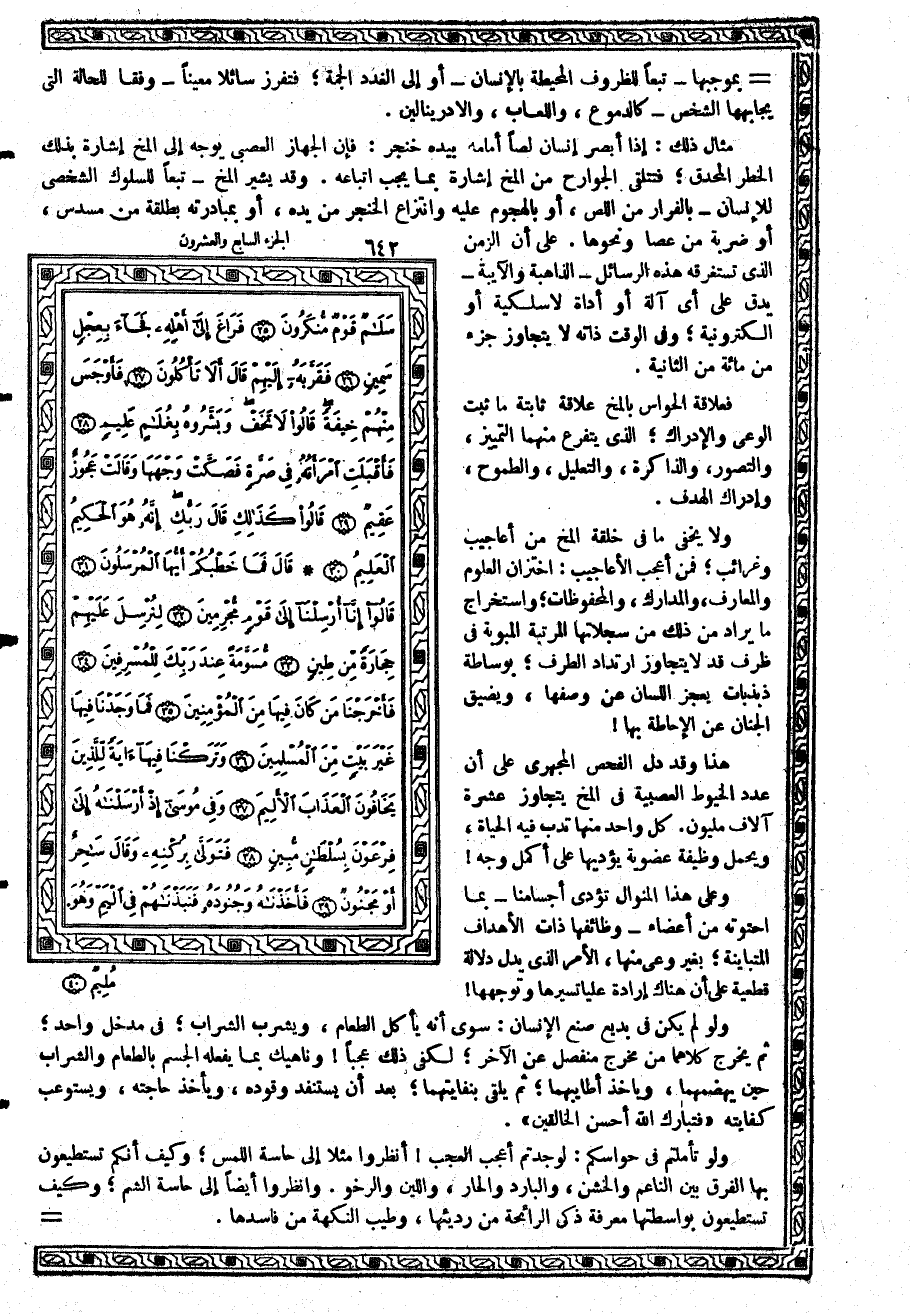 = بموجبها ــ تبعاً للظروف المحيطة بالإنسان ــ أو إلى الغدد الجمة ؛ فتفرز سائلا معيناً ــ وفقا للحالة التى
يجابهها الشخص ــ كالدموع ، واللعاب ، والادرينالين .
مثال ذلك : إذا أبصر إنسان لصاً أمامه بيده خنجر : فإن الجهاز العصبى يوجه إلى المخ إشارة بذلك
الخطر المحدق ؛ فتتلقى الجوارح من المخ إشارة بما يجب اتباعه . وقد يشير المخ ــ تبعاً للسلوك الشخصى
للإنسان ــ بالفرار من اللص ، أو بالهجوم عليه وانتزاع الخنجر من يده ، أو بمبادرته بطلقة من مسدس ،
أو ضربة من عصا ونحوها . على أن الزمن
الذى تستغرقه هذه الرسائل ــ الذاهبة والآيبة ــ
يدق على أى آلة أو أداة لاسلكية أو
الكترونية ؛ وفى الوقت ذاته لا يتجاوز جزء
من مائة من الثانية .
فعلاقة الحواس بالمخ علاقة ثابتة ما ثبت
الوعى والإدراك ؛ الذى يتفرع منهما التمييز ،
والتصور، والذاكرة ، والتعليل ، والطموح ،
وإدراك الهدف .
ولا يخفى ما فى خلقة المخ من أعاجيب
وغرائب ؛ فمن أعجب الأعاجيب : اختزان العلوم
والمعارف، والمدارك ، والمحفوظات؛ واستخراج
ما يراد من ذلك من سجلاتها المرتبة المبوبة فى
ظرف قد لايتجاوز ارتداد الطرف ؛ بوساطة
ذبذبات يعجز اللسان عن وصفها ، ويضيق
الجنان عن الإحاطة بها !
هذا وقد دل الفحص المجهرى على أن
عدد الخيوط العصبية فى المخ يتجاوز عشرة
آلاف مليون. كل واحد منها تدب فيه الحياة ،
ويحمل وظيفة عضوية يؤديها على أكمل وجه !
وعلى هذا المنوال تؤدى أجسامنا ــ بما
احتوته من أعضاء ــ وظائفها ذات الأهداف
المتباينة ؛ بغير وعى منها ، الأمر الذى يدل دلالة
قطعية على أن هناك إرادة عليا تسيرها وتوجهها!
٦٤٢ الجزء السابع والعشرون
سَلَـٰمٌ قَوْمٌ مُّنكَرُونَ ﴿٢٥﴾ فَرَاغَ إِلَىٰٓ أَهْلِهِۦ فَجَآءَ بِعِجْلٍ
سَمِينٍ ﴿٢٦﴾ فَقَرَّبَهُۥٓ إِلَيْهِمْ قَالَ أَلَا تَأْكُلُونَ ﴿٢٧﴾ فَأَوْجَسَ
مِنْهُمْ خِيفَةً ۖ قَالُوا۟ لَا تَخَفْ ۖ وَبَشَّرُوهُ بِغُلَـٰمٍ عَلِيمٍ ﴿٢٨﴾
فَأَقْبَلَتِ ٱمْرَأَتُهُۥ فِى صَرَّةٍ فَصَكَّتْ وَجْهَهَا وَقَالَتْ عَجُوزٌ
عَقِيمٌ ﴿٢٩﴾ قَالُوا۟ كَذَٰلِكِ قَالَ رَبُّكِ ۖ إِنَّهُۥ هُوَ ٱلْحَكِيمُ
ٱلْعَلِيمُ ﴿٣٠﴾ * قَالَ فَمَا خَطْبُكُمْ أَيُّهَا ٱلْمُرْسَلُونَ ﴿٣١﴾
قَالُوٓا۟ إِنَّآ أُرْسِلْنَآ إِلَىٰ قَوْمٍ مُّجْرِمِينَ ﴿٣٢﴾ لِنُرْسِلَ عَلَيْهِمْ
حِجَارَةً مِّن طِينٍ ﴿٣٣﴾ مُّسَوَّمَةً عِندَ رَبِّكَ لِلْمُسْرِفِينَ ﴿٣٤﴾
فَأَخْرَجْنَا مَن كَانَ فِيهَا مِنَ ٱلْمُؤْمِنِينَ ﴿٣٥﴾ فَمَا وَجَدْنَا فِيهَا
غَيْرَ بَيْتٍ مِّنَ ٱلْمُسْلِمِينَ ﴿٣٦﴾ وَتَرَكْنَا فِيهَآ ءَايَةً لِّلَّذِينَ
يَخَافُونَ ٱلْعَذَابَ ٱلْأَلِيمَ ﴿٣٧﴾ وَفِى مُوسَىٰٓ إِذْ أَرْسَلْنَـٰهُ إِلَىٰ
فِرْعَوْنَ بِسُلْطَـٰنٍ مُّبِينٍ ﴿٣٨﴾ فَتَوَلَّىٰ بِرُكْنِهِۦ وَقَالَ سَـٰحِرٌ
أَوْ مَجْنُونٌ ﴿٣٩﴾ فَأَخَذْنَـٰهُ وَجُنُودَهُۥ فَنَبَذْنَـٰهُمْ فِى ٱلْيَمِّ وَهُوَ
مُلِيمٌ ﴿٤٠﴾
ولو لم يكن فى بديع صنع الإنسان : سوى أنه يأكل الطعام ، ويشرب الشراب ؛ فى مدخل واحد ؛
ثم يخرج كلاهما من مخرج منفصل عن الآخر ؛ لكفى ذلك عجباً ! وناهيك بما يفعله الجسم بالطعام والشراب
حين يهضمهما ، وياخذ أطايبهما ؛ ثم يلقى بنفايتهما؛ بعد أن يستنفد وقوده ، ويأخذ حاجته ، ويستوعب
كفايته «فتبارك الله أحسن الخالقين» .
ولو تأملتم فى حواسكم : لوجدتم أعجب العجب ! أنظروا مثلا إلى حاسة اللمس ؛ وكيف أنكم تستطيعون
بها الفرق بين الناعم والخشن ، والبارد والحار ، واللين والرخو . وانظروا أيضاً إلى حاسة الشم ؛ وكيف
تستطيعون بواسطتها معرفة ذكى الرائحة من رديئها ، وطيب النكهة من فاسدها . =